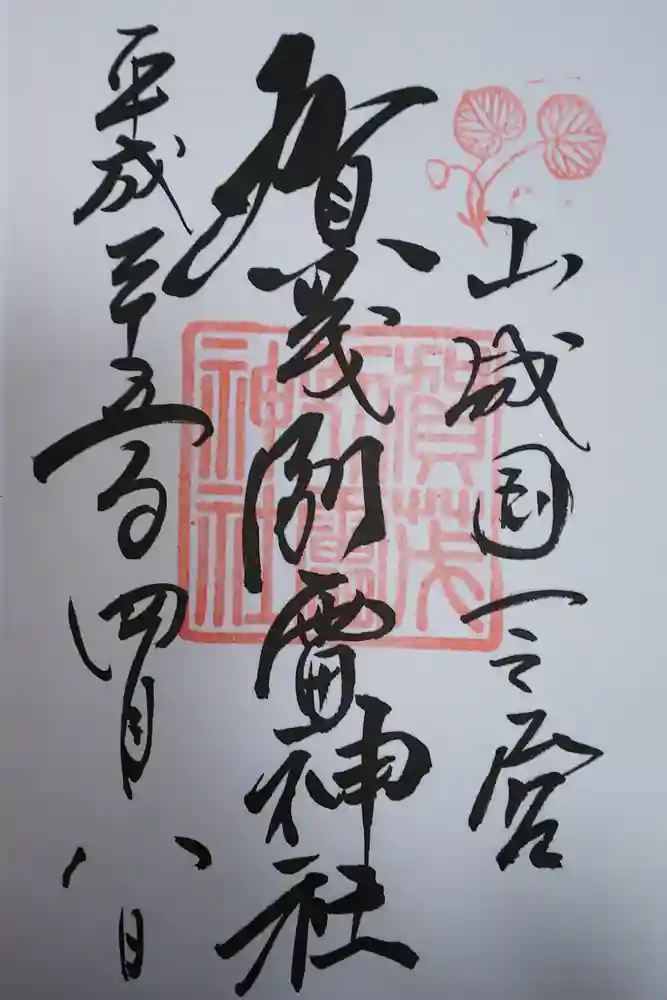 山城国一之宮
賀茂別雷神社
平成二十五年四月八日
賀茂
別雷
神社